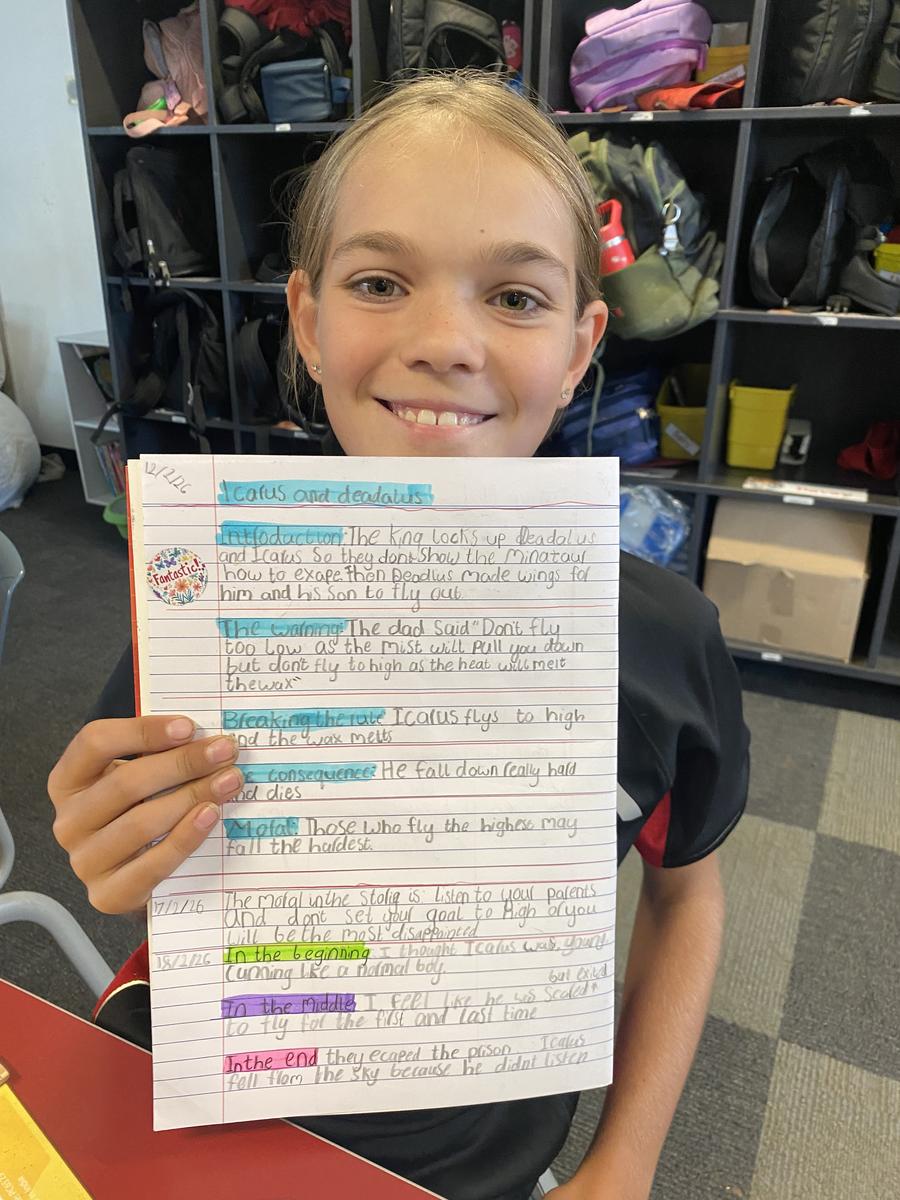 12/2/26
Icarus and deadalus
Introduction: The king locks up Deadalus
and Icarus So they dont show the Minataur
how to exape then Deadlus made wings for
him and his son to fly out.
Fantastic!
The warning: The dad said "Don't fly
too low as the mist will pull you down
but don't fly to high as the heat will melt
the wax"
Breaking the rule Icarus flys to high
and the wax melts
consequence: He fall down really hard
and dies
Moral: Those who fly the highest may
fall the hardest.
17/2/26 The moral in the storie is: listen to your parents
and dont set your goal to high or you
will be the most disappointed
18/2/26 In the beginning I thought Icarus was, young
cunning like a normal boy.
but exited
In the Middle I feel like he was scared
to fly for the first and last time
In the end they ecaped the prison Icarus
fell from the sky because he didnt listen